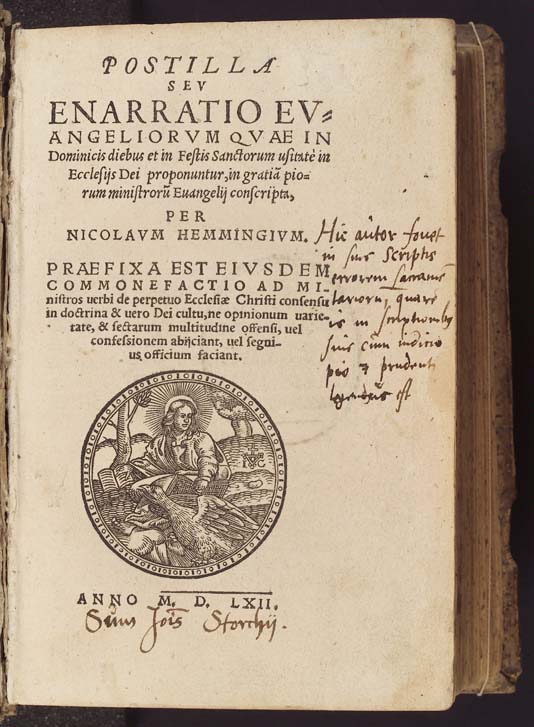 POSTILLA
SEV
ENARRATIO EV=
ANGELIORVM QVAE IN
Dominicis diebus et in Festis Sanctorum usitatè in
Ecclesijs Dei proponuntur, in gratiã pio=
rum ministrorũ Euangelij conscripta,
PER
NICOLAVM HEMMINGIVM.
PRAEFIXA EST EIVSDEM
COMMONEFACTIO AD MI-
nistros uerbi de perpetuo Ecclesiæ Christi consensu
in doctrina & uero Dei cultu, ne opinionum uarie-
tate, & sectarum multitudine offensi, uel
confessionem abijciant, uel segni-
us officium faciant.
Hic autor fouet
in suis Scriptis
errorem Sacrame-
tariorũ, quare
is in scriptionibus
suis cũm iudicio
pio & prudenti
legendus est
IC
ANNO M. D. LXII.
Sum Jois Storchij.